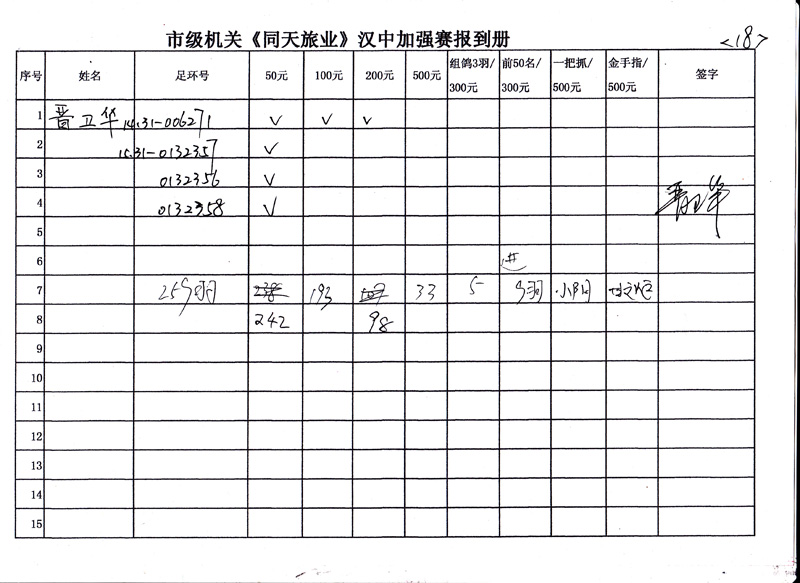 市级机关《同天旅业》汉中加强赛报到册
<18>
序号 姓名 足环号 50元 100元 200元 500元 组鸽3羽/300元 前50名/300元 一把抓/500元 金手指/500元 签字
1 晋卫华 14.31-006271 √ √ √
2 15.31-0132357 √
3 0132356 √
4 0132358 √
5
6 共
7 193 33 5 小阳
8 242 98
9
10
11
12
13
14
15